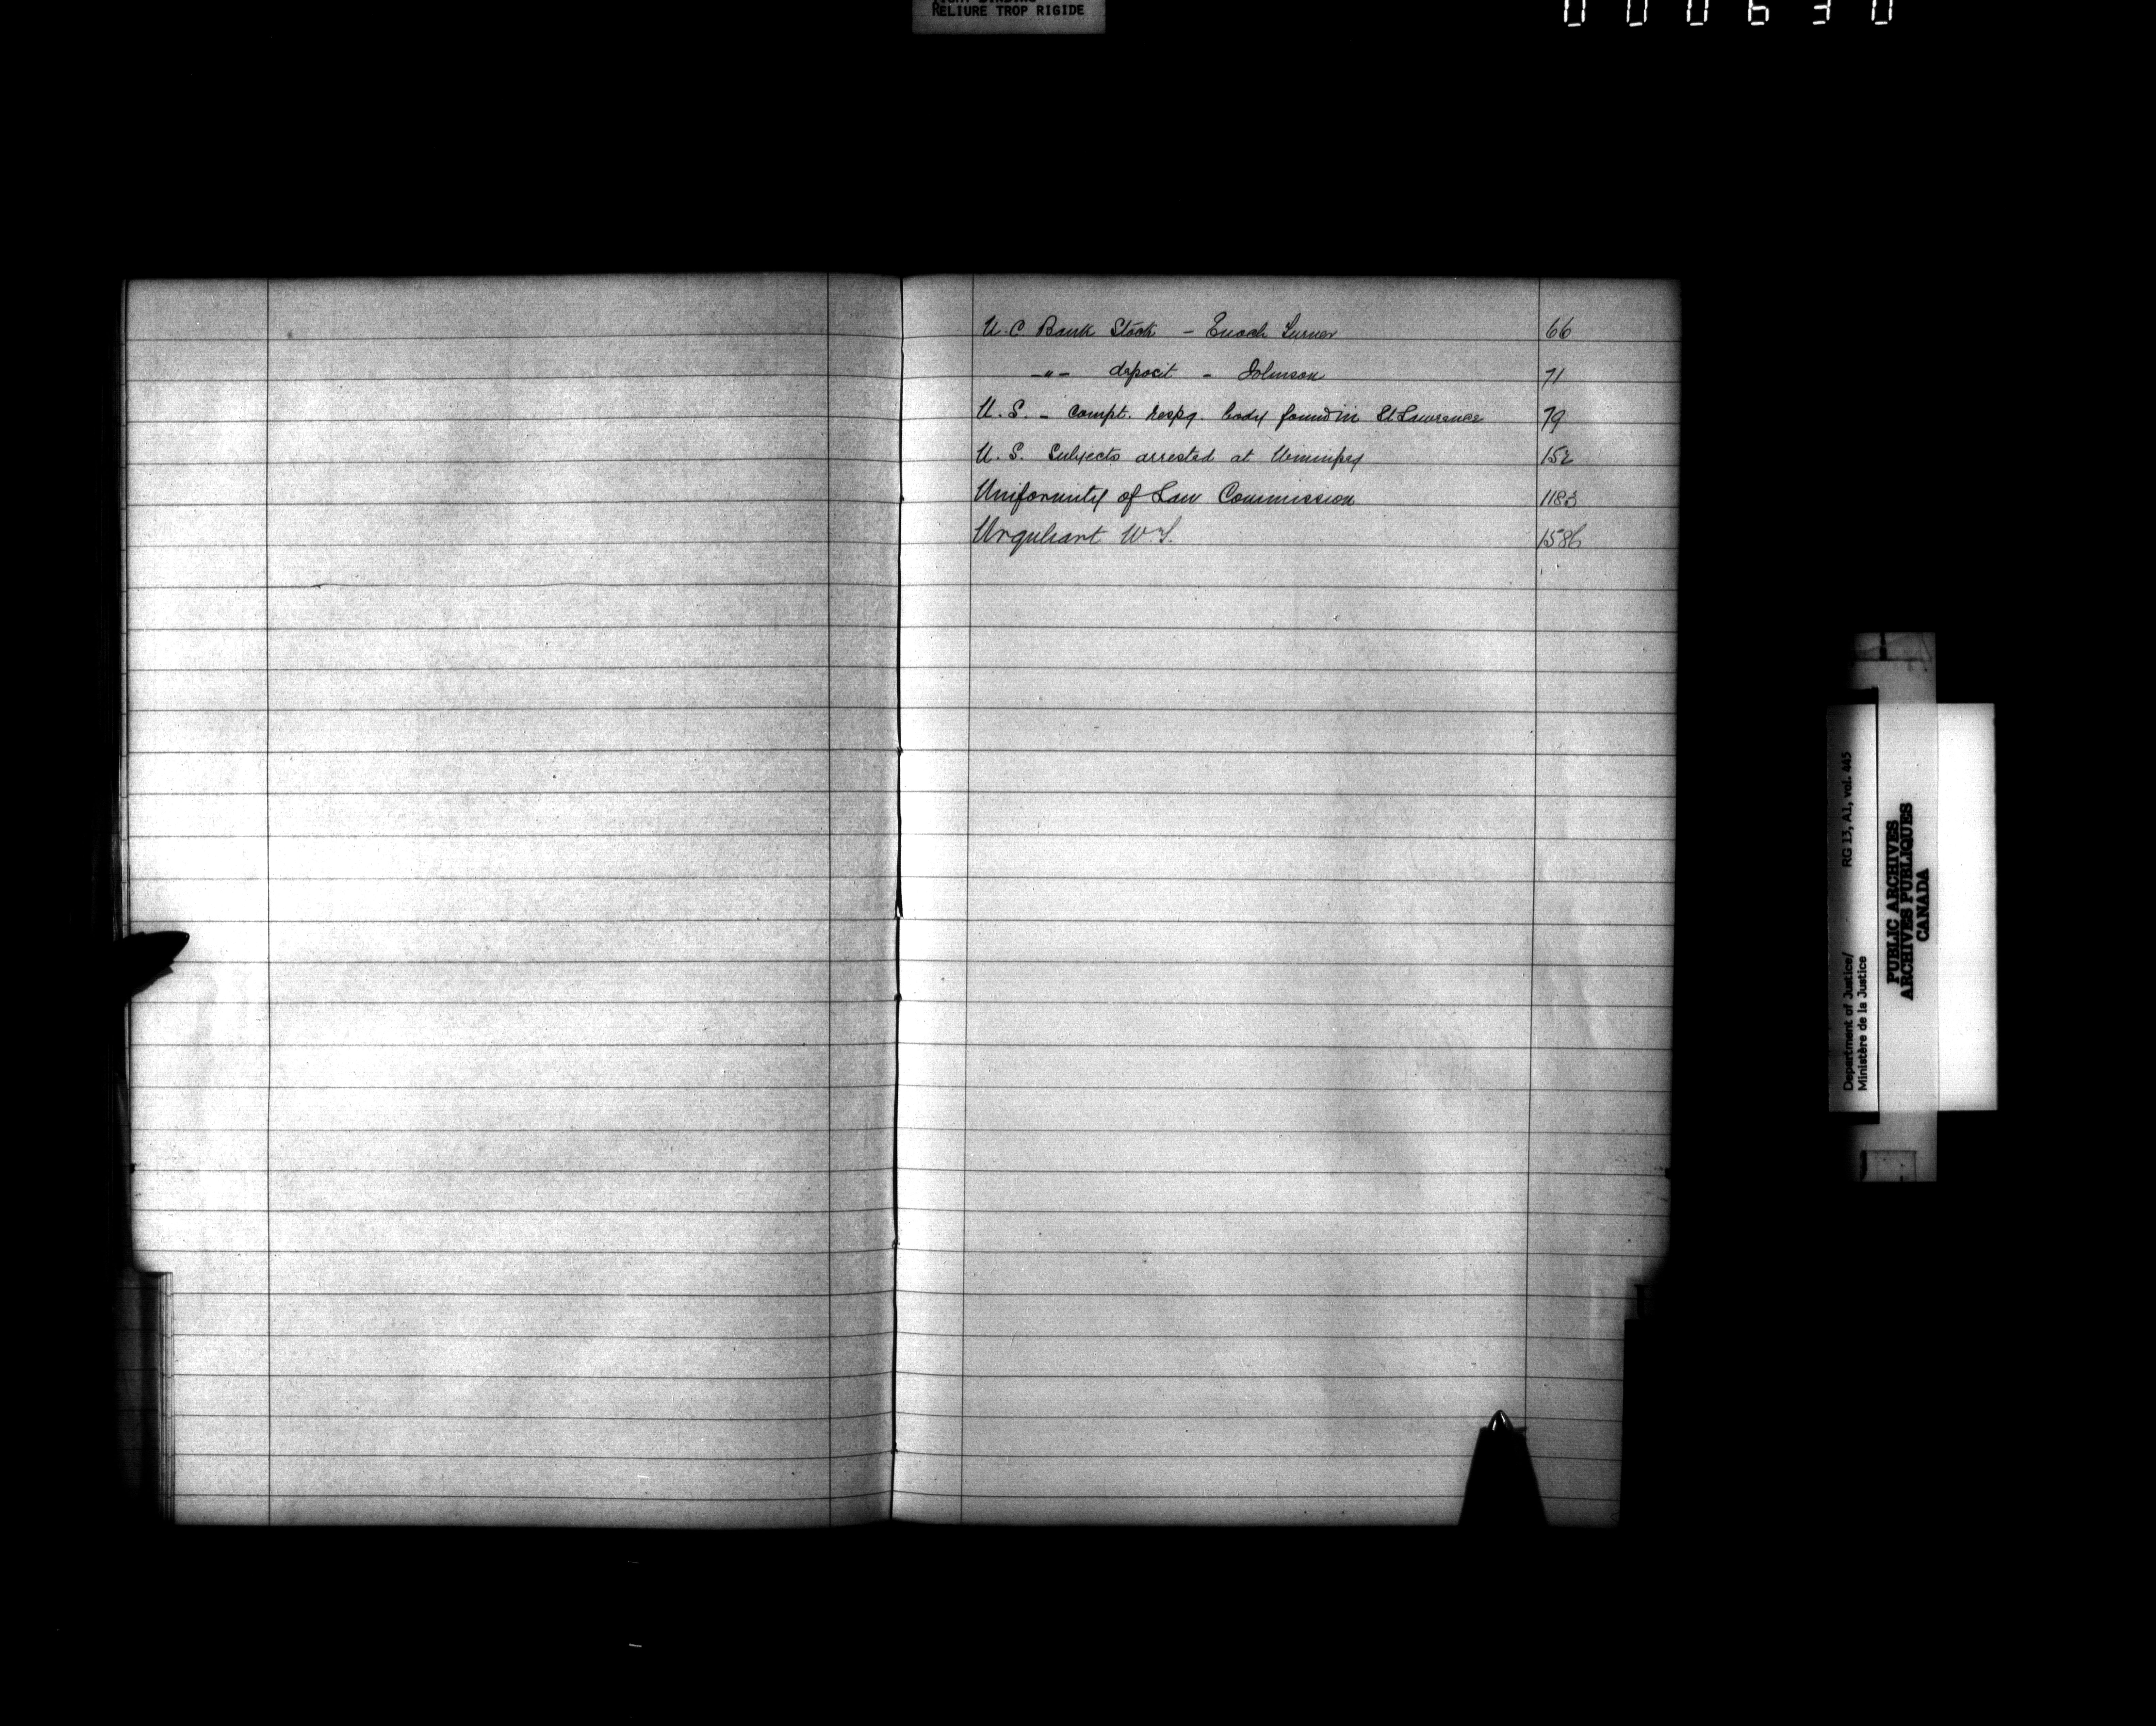 RELIURE TROP RIGIDE
000630
U.C Bank Stock - Enoch Turner 66
-"- deposit - Johnson 71
U.S. - Compt. respg. body found in St Lawrence 79
U.S. Subjects arrested at Winnipeg 152
Uniformity of Law Commission 1183
Urquhart W.S. 1586
U
Department of Justice/ RG 13, A1, vol. 445
Ministère de la Justice
PUBLIC ARCHIVES
ARCHIVES PUBLIQUES
CANADA